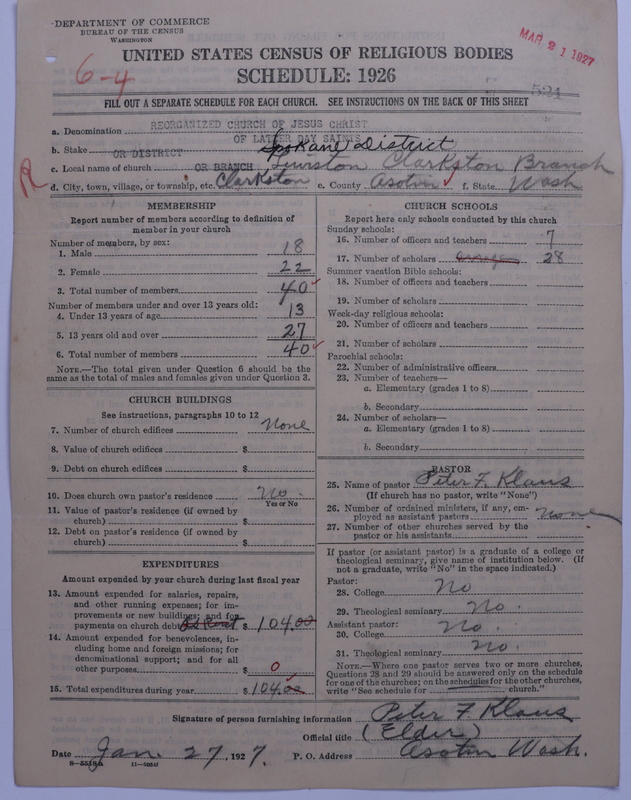 DEPARTMENT OF COMMERCE
BUREAU OF THE CENSUS
WASHINGTON
MAR 21 1927
UNITED STATES CENSUS OF RELIGIOUS BODIES
6-4
SCHEDULE: 1926
524
FILL OUT A SEPARATE SCHEDULE FOR EACH CHURCH. SEE INSTRUCTIONS ON THE BACK OF THIS SHEET
a. Denomination REORGANIZED CHURCH OF JESUS CHRIST
OF LATTER DAY SAINTS
b. Stake OR DISTRICT Spokane District
c. Local name of church OR BRANCH Lewiston Clarkston Branch
R
d. City, town, village, or township, etc. Clarkston e. County Asotin f. State Wash
MEMBERSHIP
Report number of members according to definition of
member in your church
Number of members, by sex:
1. Male 18
2. Female 22
3. Total number of members 40
Number of members under and over 13 years old:
4. Under 13 years of age 13
5. 13 years old and over 27
6. Total number of members 40
NOTE.—The total given under Question 6 should be the
same as the total of males and females given under Question 3.
CHURCH BUILDINGS
See instructions, paragraphs 10 to 12
7. Number of church edifices None
8. Value of church edifices $
9. Debt on church edifices $
10. Does church own pastor's residence No.
Yes or No
11. Value of pastor's residence (if owned by
church) $
12. Debt on pastor's residence (if owned by
church) $
EXPENDITURES
Amount expended by your church during last fiscal year
13. Amount expended for salaries, repairs,
and other running expenses; for im-
provements or new buildings; and for
payments on church debt $ 104.00
14. Amount expended for benevolences, in-
cluding home and foreign missions; for
denominational support; and for all
other purposes $ 0
15. Total expenditures during year $ 104.00
CHURCH SCHOOLS
Report here only schools conducted by this church
Sunday schools:
16. Number of officers and teachers 7
17. Number of scholars 28
Summer vacation Bible schools:
18. Number of officers and teachers
19. Number of scholars
Week-day religious schools:
20. Number of officers and teachers
21. Number of scholars
Parochial schools:
22. Number of administrative officers
23. Number of teachers—
a. Elementary (grades 1 to 8)
b. Secondary
24. Number of scholars—
a. Elementary (grades 1 to 8)
b. Secondary
PASTOR
25. Name of pastor Peter F. Klaus
(If church has no pastor, write "None")
26. Number of ordained ministers, if any, em-
ployed as assistant pastors None
27. Number of other churches served by the
pastor or his assistants
If pastor (or assistant pastor) is a graduate of a college or
theological seminary, give name of institution below. (If
not a graduate, write "No" in the space indicated.)
Pastor:
28. College No
29. Theological seminary No.
Assistant pastor:
30. College No.
31. Theological seminary No.
NOTE.—Where one pastor serves two or more churches,
Questions 28 and 29 should be answered only on the schedule
for one of the churches; on the schedules for the other churches,
write "See schedule for church."
Signature of person furnishing information Peter F Klaus
Official title (Elder)
Date Jan 27, 1927. P. O. Address Asotin Wash.